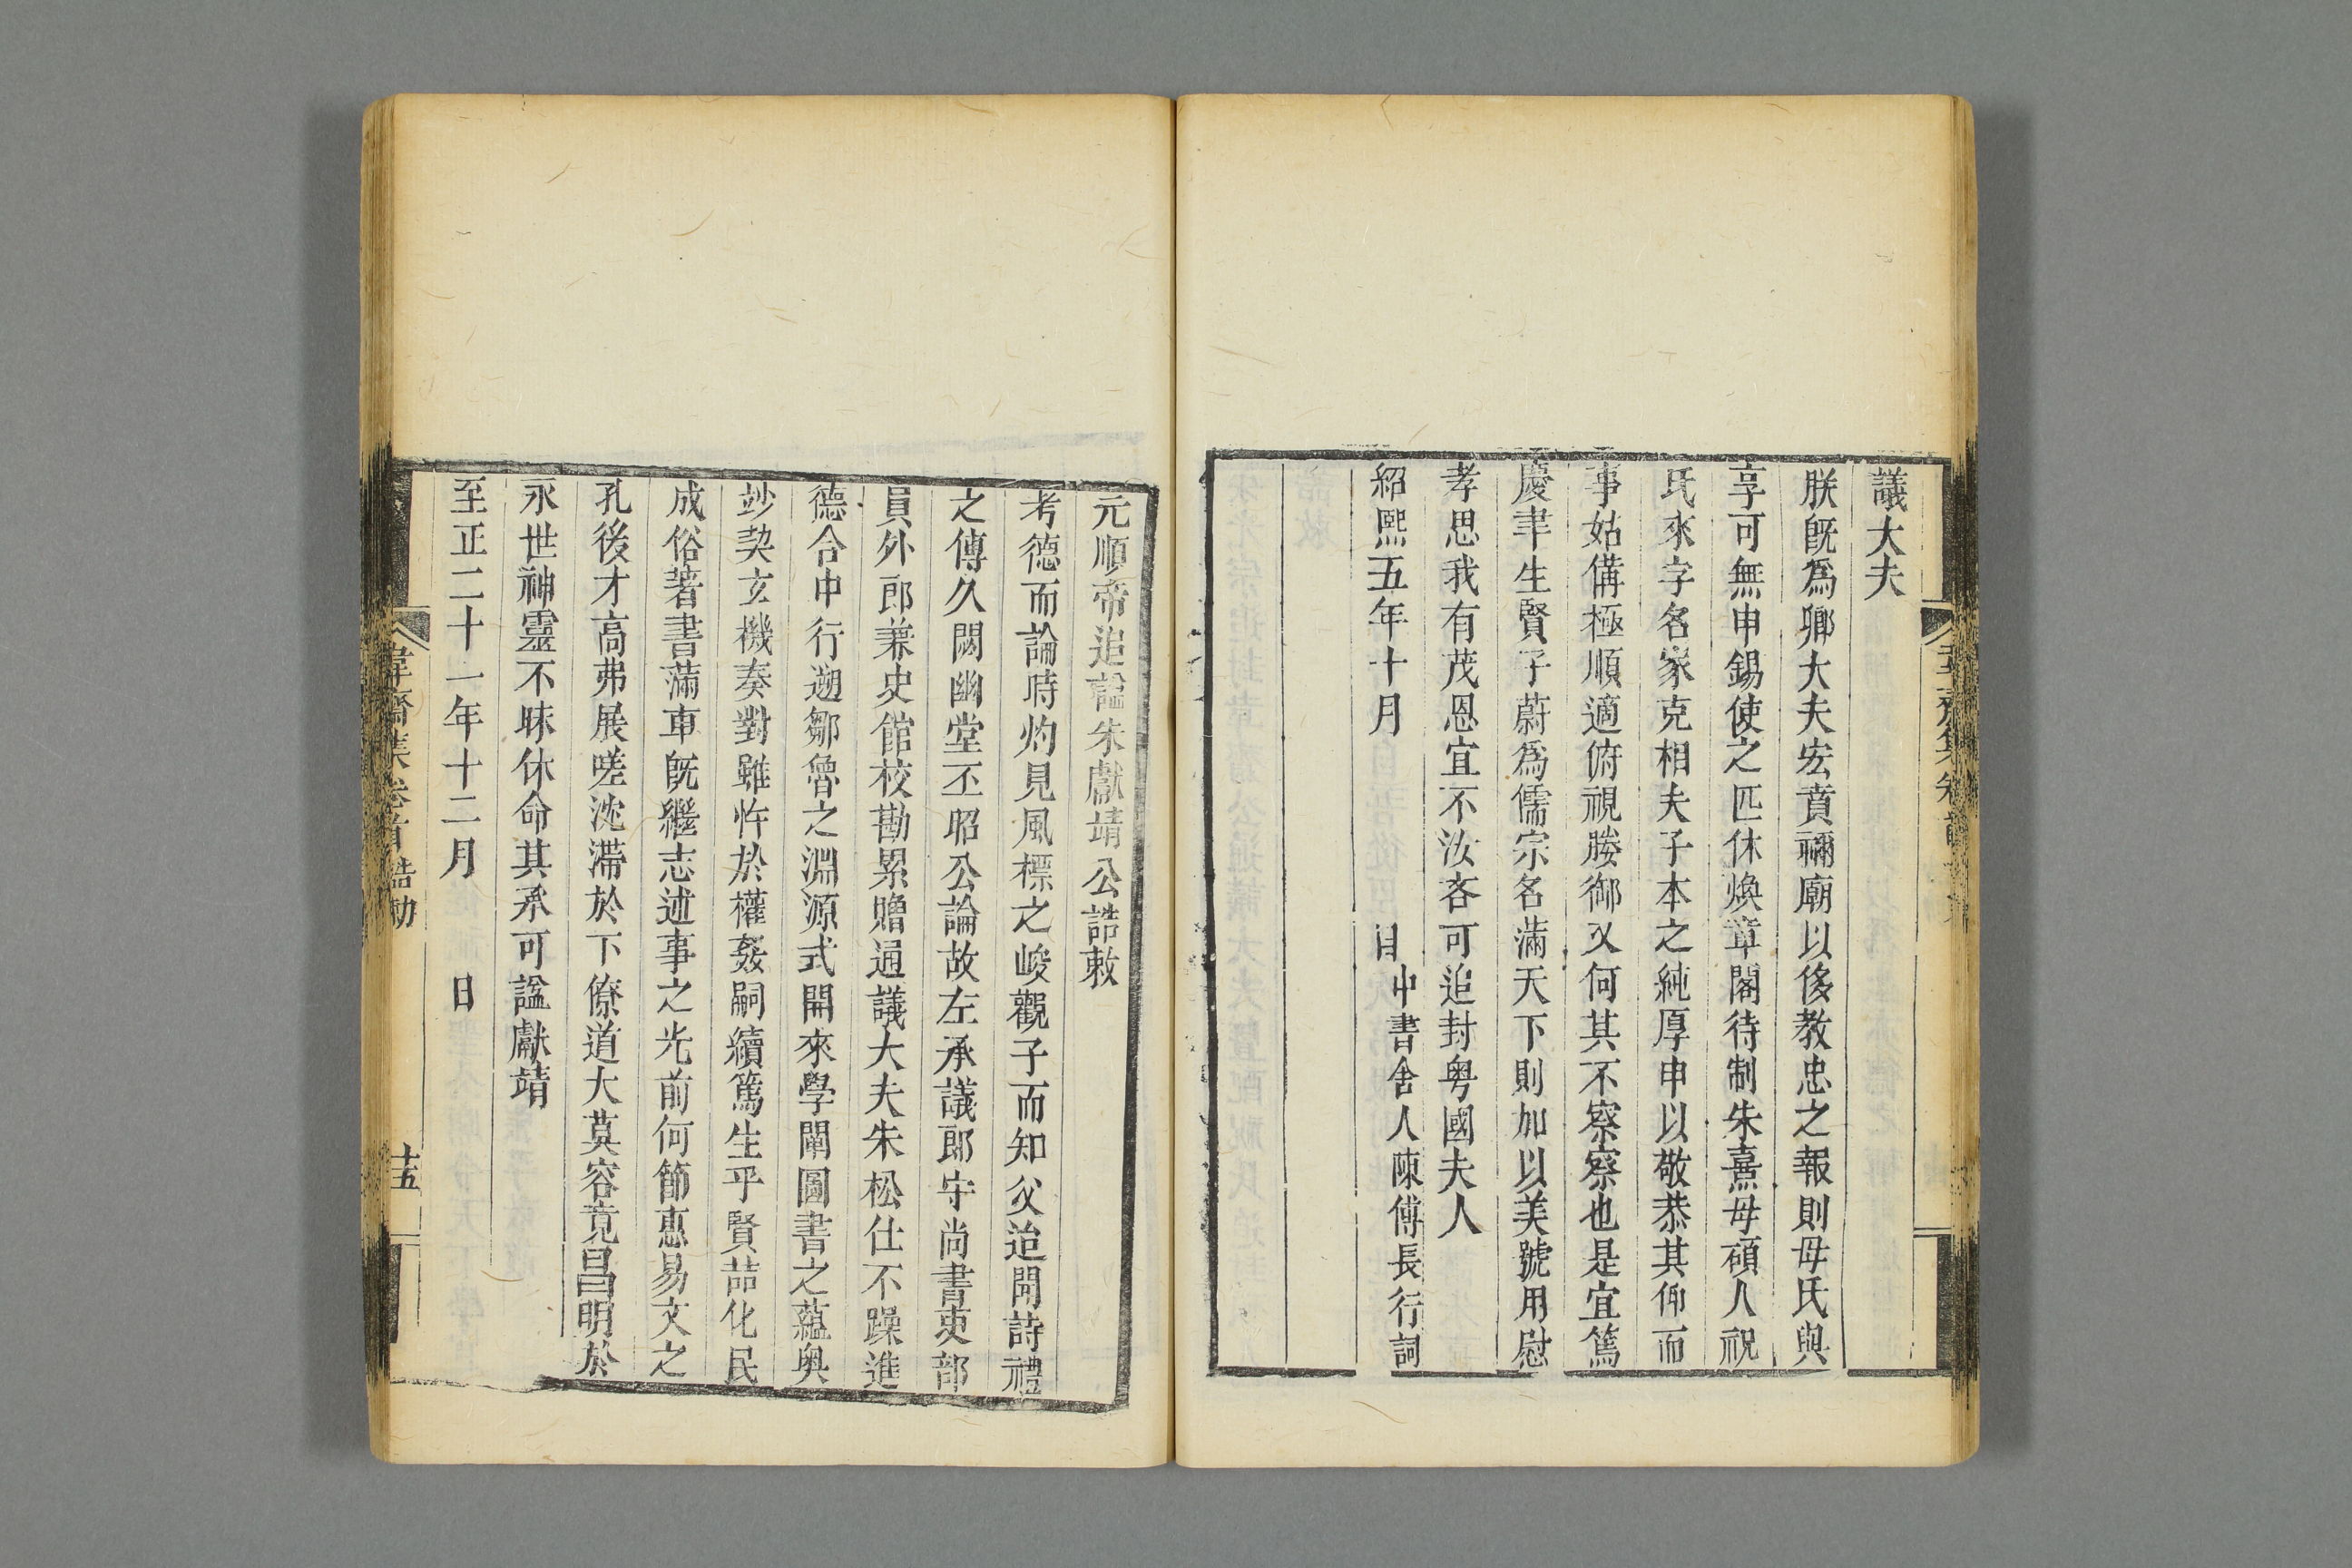 議大夫
朕旣爲卿大夫宏賁禰廟以侈教忠之報則母氏與
享可無申錫使之匹休煥章閣待制朱熹母碩人祝
氏來字名家克相夫子本之純厚申以敬恭其仰而
事姑備極順適俯視媵御又何其不察察也是宜篤
慶聿生賢子蔚爲儒宗名滿天下則加以美號用慰
孝思我有茂恩宜不汝吝可追封粤國夫人
紹熙五年十月　　　日中書舍人陳傅長行詞
元順帝追諡朱獻靖公誥敕
考德而論時灼見風標之峻觀子而知父迨聞詩禮
之傳久閟幽堂丕昭公論故左承議郎守尚書吏部
員外郎兼史館校勘累贈通議大夫朱松仕不躁進
德合中行遡鄒魯之淵源式開來學闡圖書之蘊奥
玅契玄機奏對雖忤於權姦嗣續篤生乎賢喆化民
成俗著書滿車旣繼志述事之光前何節惠易文之
孔後才高弗展嗟沈滯於下僚道大莫容竟昌明於
永世神靈不昧休命其承可諡獻靖
至正二十一年十二月　　日
韋齋集卷首 誥勅
十五